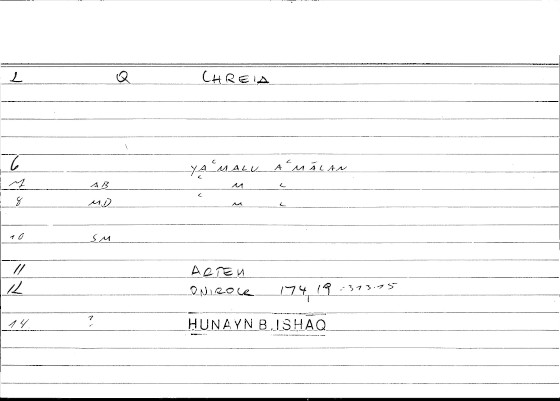 1 Q CHREIA
6 YAʿMALU AʿMĀLAN
7 AB ʿ M ʿ
8 MD ʿ M ʿ
10 SM
11 ARTEM
12 ONIROCR 174,19 = 313.15
14 ? HUNAYN B. ISHAQ